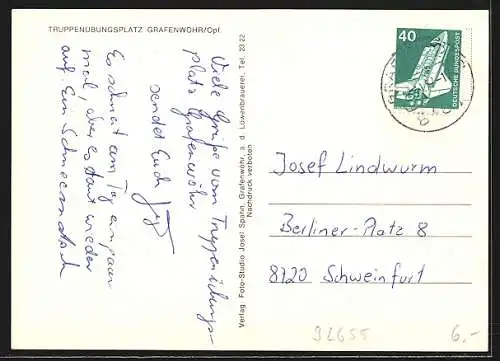 TRUPPENÜBUNGSPLATZ GRAFENWÖHR/Opf.
Viele Grüße vom Truppenübungs-
platz Grafenwöhr
sendet Euch
Es schneit am Tag ein paar
mal, aber es taut wieder
auf. Ein Schneematsch
Verlag Foto-Studio Josef Spahn, Grafenwöhr, a. d. Löwenbrauerei, Tel. 23 22
Nachdruck verboten
40
DEUTSCHE BUNDESPOST
Josef Lindwurm
Berliner-Platz 8
8720 Schweinfurt
92655
6,-